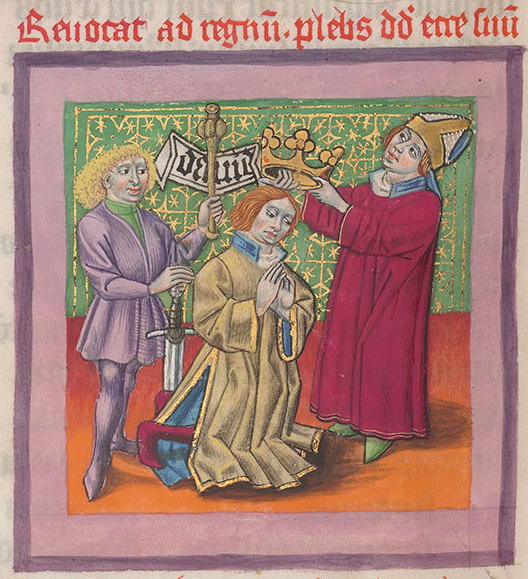 Reuocat ad regnū. plebs dd̄ ecce suū